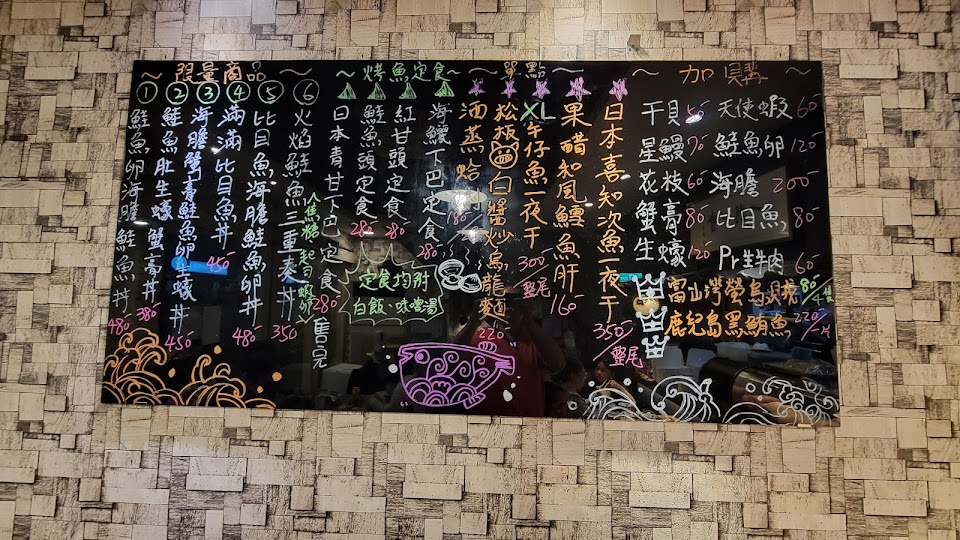 ～限量商品～
①鮭魚卵海膽鮭魚丼 480
②鮭魚肚生蠔蟹膏丼 380
③海膽蟹膏鮭魚卵生蠔丼 450
④滿滿比目魚丼 450
⑤比目魚海膽鮭魚卵丼 480
⑥火焰鮭魚三重奏 350
～烤魚定食～
日本青甘下巴定食 280 售完
鮭魚頭定食
紅甘頭定食
海鱺下巴定食 280
定食均附
白飯、味噌湯
～單點～
酒蒸蛤 180
松板白醬炒烏龍麵 220
XL午仔魚一夜干 300 整尾
果醋和風鱈魚肝 160
日本喜知次魚一夜干 350/整尾
～加購～
干貝
天使蝦 60
星鰻 70
鮭魚卵 120
花枝 60
海膽 200
蟹膏 80
比目魚 80
生蠔 120
Pr生牛肉 60
富山灣螢烏賊 80
鹿兒島黑鮪魚 220